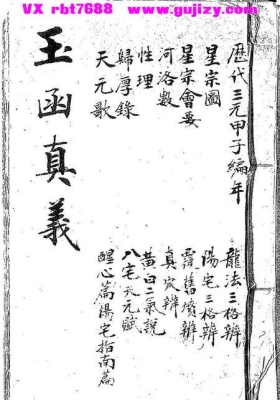 VX rbt7688 www.gujizy.com
歷代三元甲子編年
星宗圖
星宗會要
河洛數
性理
歸厚錄
天元歌
龍法三格辨
陽宅三格辨
舊墳辨
真穴辨
黃白二氣說
八宅天元賦
醒心篇陽宅指南篇
玉函真義